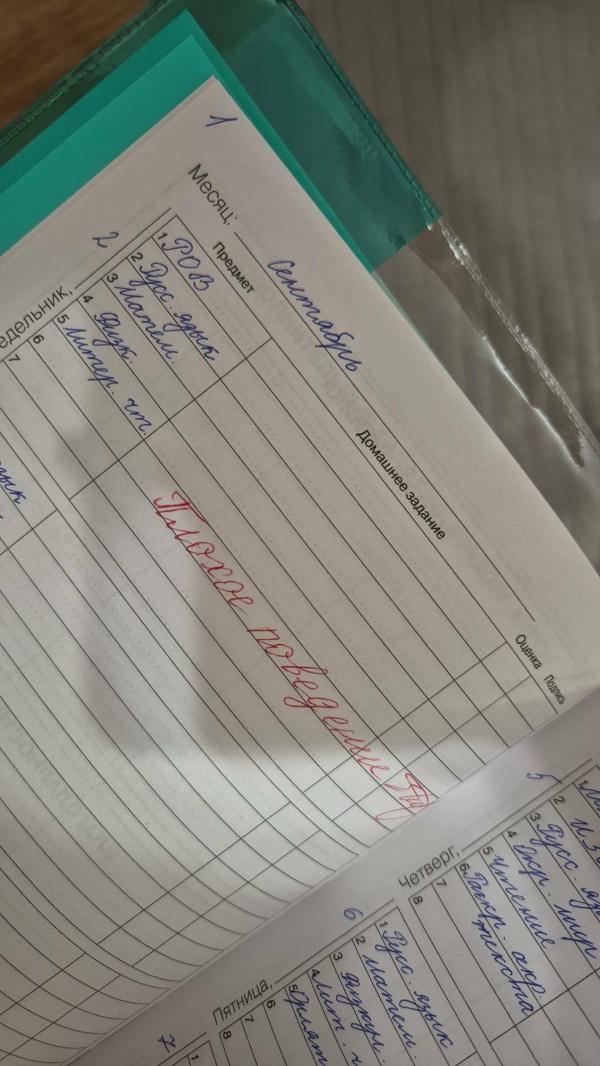 1
Месяц: сентябрь
Предмет Домашнее задание Оценка Подпись
2
1 РОВ
2 Русс. язык
3 Матем.
4 Физк.
5 Литер. чт.
6
7
Плохое поведение
Четверг,
5
1
2 ИЗО
3 Русс. яз
4 Окр. мир
5 Чтение
6
текста
7
8
Пятница,
6
1 Русс. язык
2 Матем.
3 Физкул.
4 Лит. ч
5
6
7
8
7
1